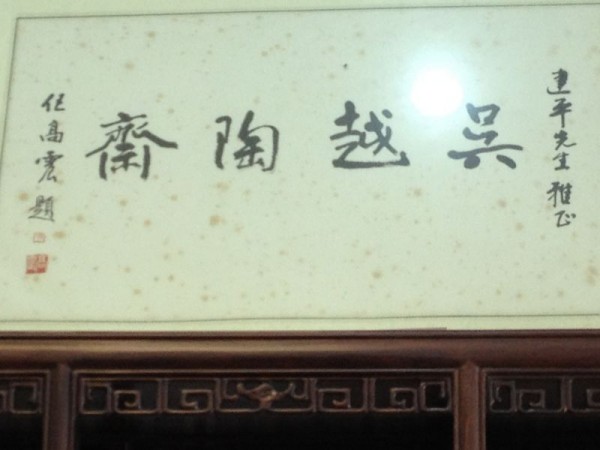 建平先生雅正
吳越陶齋
任高震題